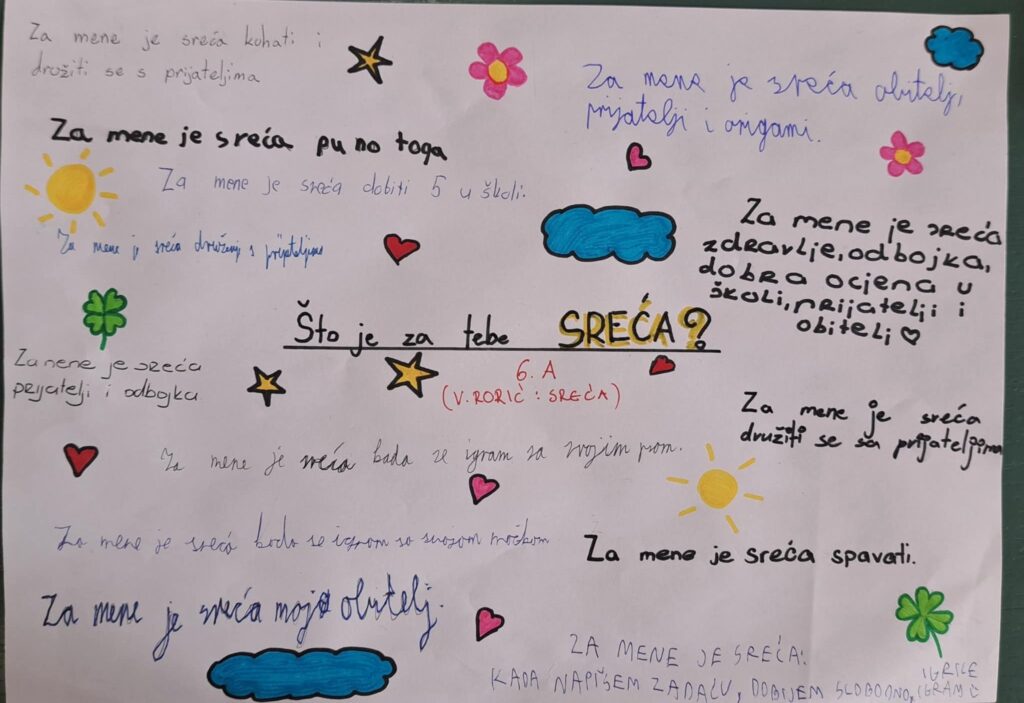 Za mene je sreća kuhati i
družiti se s prijateljima
Za mene je sreća obitelj,
prijatelji i origami.
Za mene je sreća puno toga
Za mene je sreća dobiti 5 u školi.
Za mene je sreća druženje s prijateljima
Za mene je sreća
zdravlje, odbojka,
dobra ocjena u
školi, prijatelji i
obitelj
Što je za tebe SREĆA?
6. A
(V. RORIĆ : SREĆA)
Za nene je sreća
prijatelji i odbojka
Za mene je sreća
družiti se sa prijateljima
Za mene je sreća kada se igram sa svojim psom.
Za mene je sreća kada se igram sa svojom mačkom
Za mene je sreća spavati.
Za mene je sreća moja obitelj.
ZA MENE JE SREĆA:
KADA NAPIŠEM ZADAĆU, DOBIJEM SLOBODNO, IGRAM
IGRICE